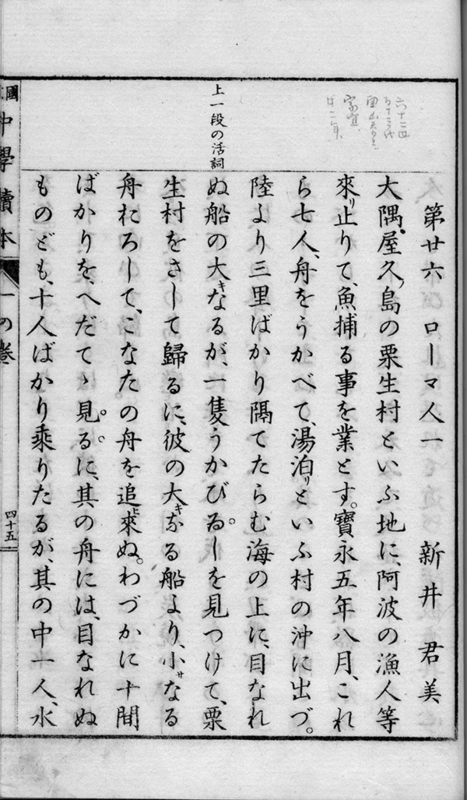 第廿六　ローマ人一　　　新井　君美
大隅、屋久島の栗生村といふ地に、阿波の漁人等
來り止りて、魚捕る事を業とす。寶永五年八月、これ
ら七人、舟をうかべて、湯泊りといふ村の沖に出づ。
陸より三里ばかり隔てたらむ海の上に、目なれ
上一段の活詞
ぬ船の大きなるが、一隻うかびゐしを見つけて、粟
生村をさして歸るに、彼の大きなる船より、小さなる
舟おろして、こなたの舟を追ひ來ぬ。わづかに十間
ばかりを、へだてゝ見るに、其の舟には、目なれぬ
ものども、十人ばかり乘りたるが、其の中一人、水
中學讀本　一の卷　四十五